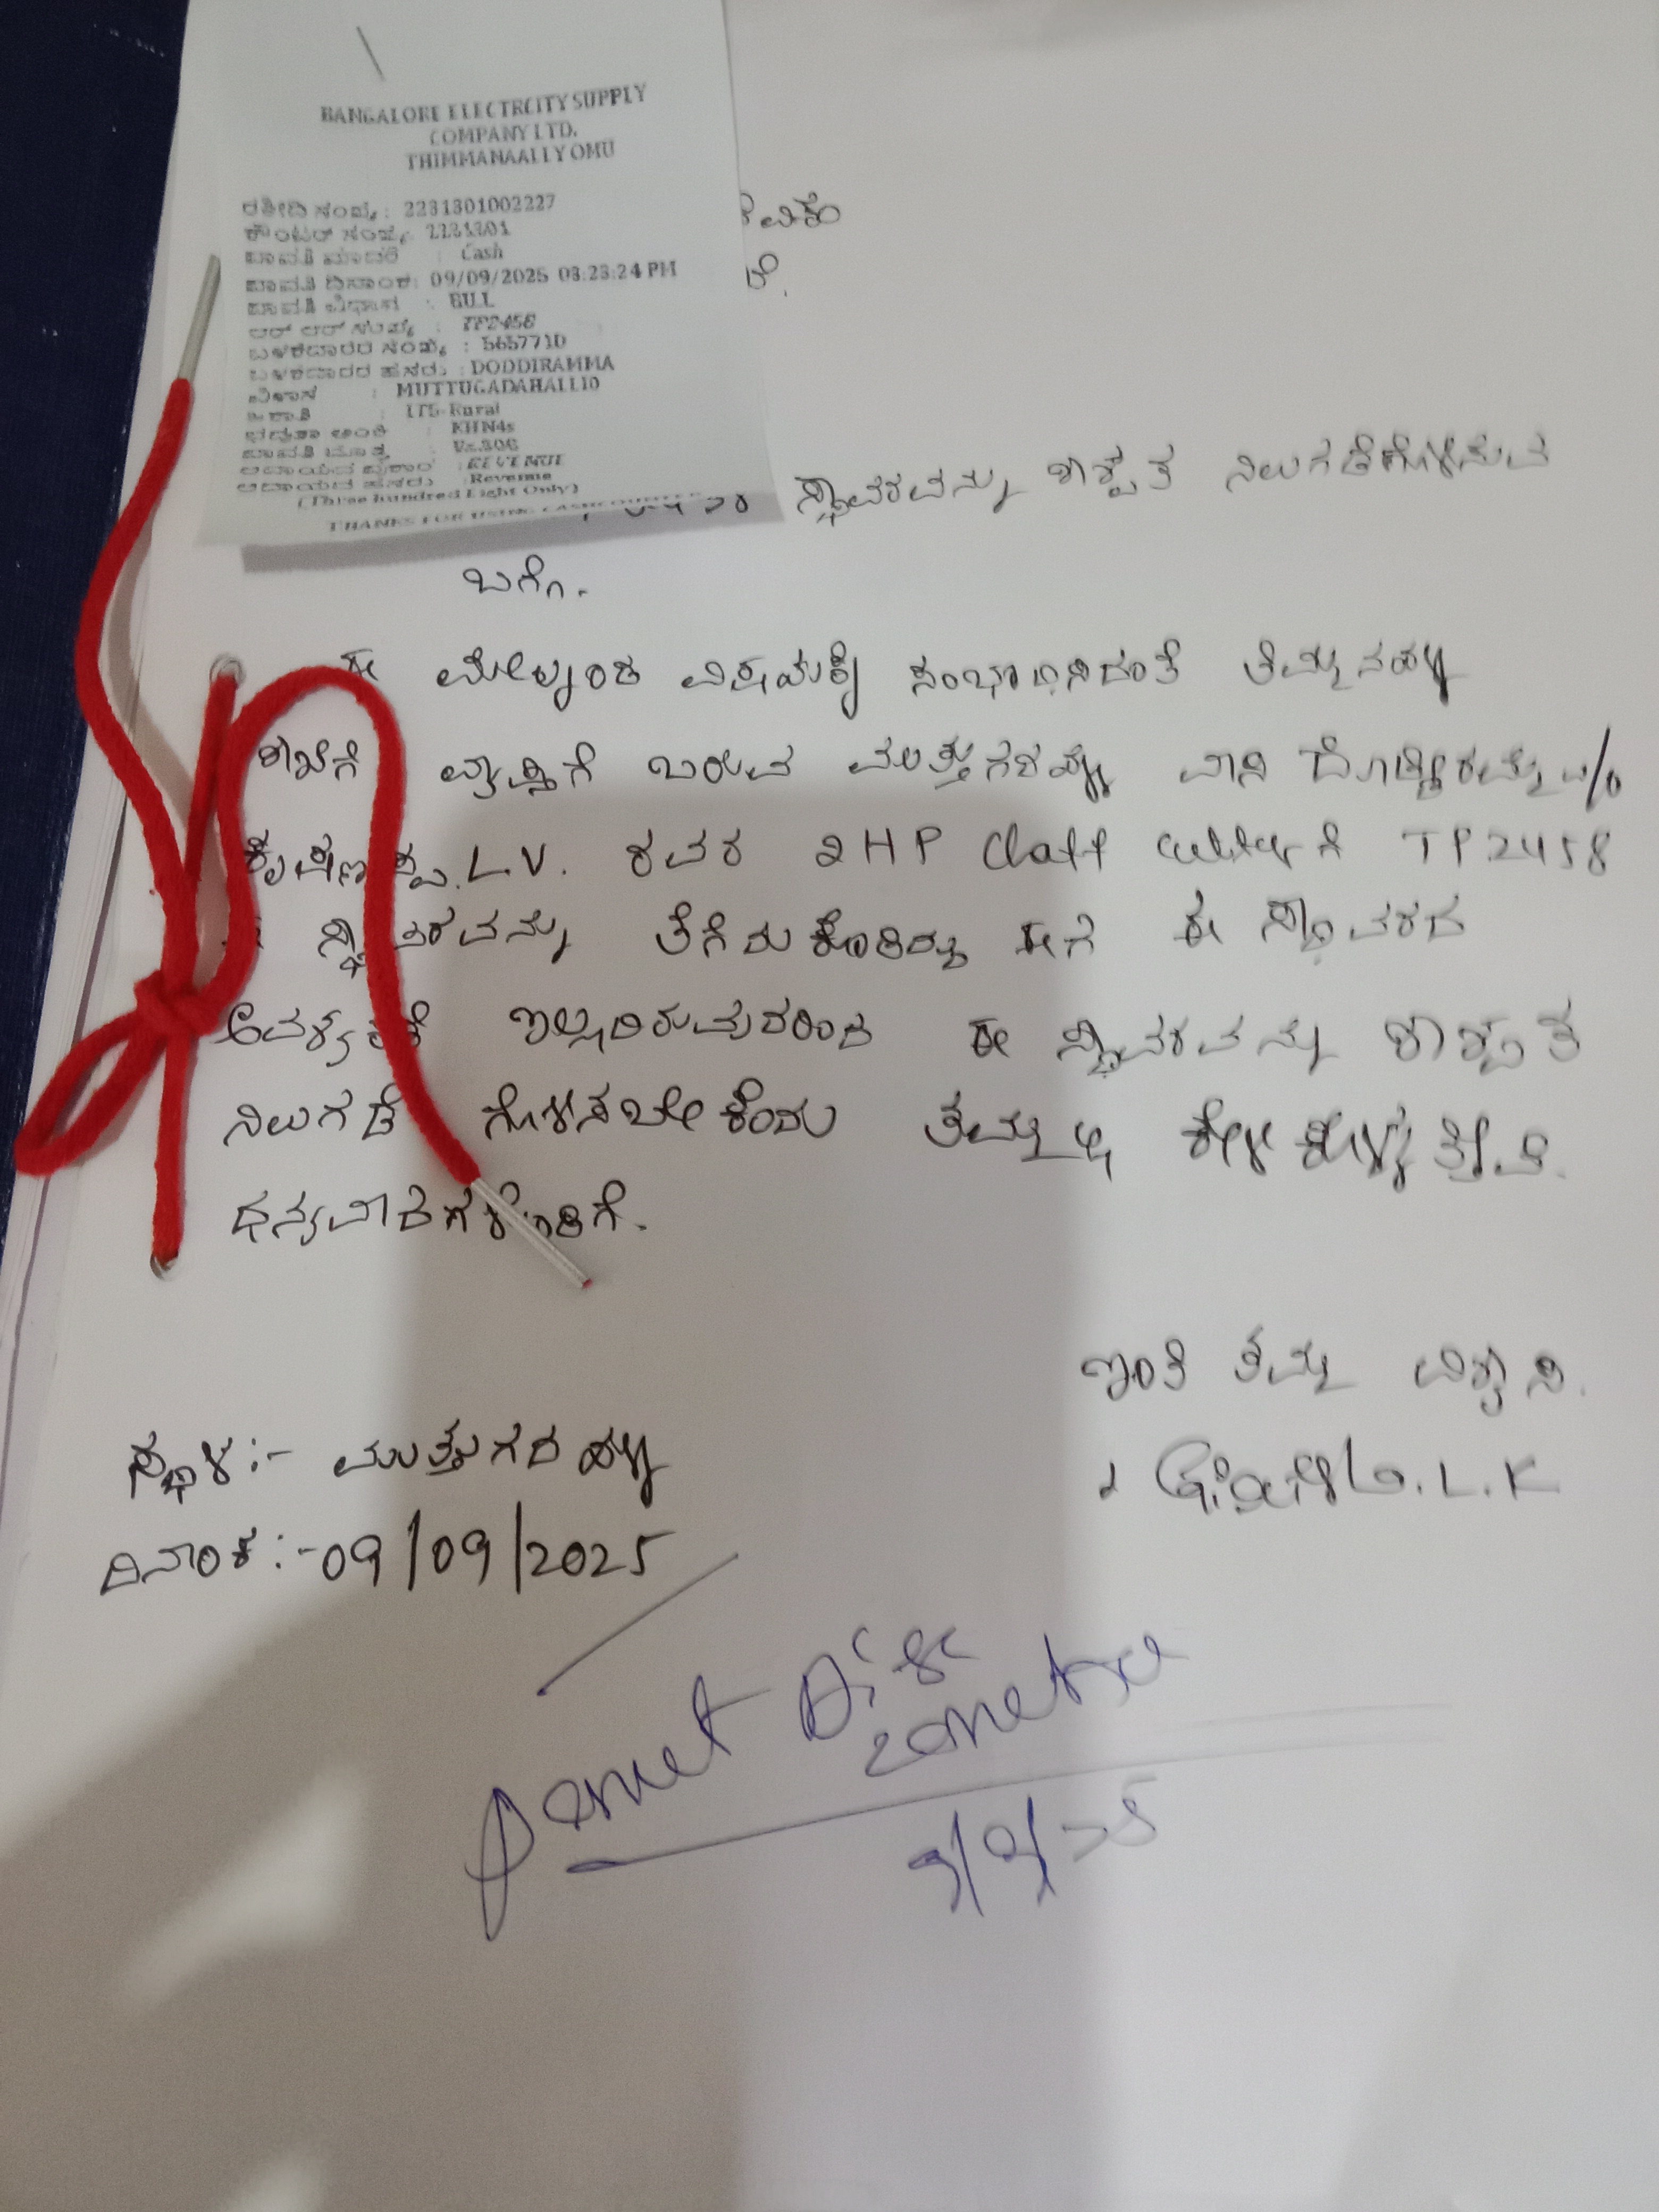 BANGALORE ELECTRCITY SUPPLY
COMPANY LTD.
THIMMANAALLY OMU
ರಶೀದಿ ಸಂಖ್ಯೆ : 2231301002227
ಕೌಂಟರ್ ಸಂಖ್ಯೆ 2231301
ಪಾವತಿ ಮಾದರಿ : Cash
ಪಾವತಿ ದಿನಾಂಕ: 09/09/2025 03:23:24 PM
ಪಾವತಿ ವಿಧಾನ : BULL
ಆರ್ ಆರ್ ಸಂಖ್ಯೆ : TP2458
ಬಳಕೆದಾರರ ಸಂಖ್ಯೆ : 5657710
ಬಳಕೆದಾರರ ಹೆಸರು : DODDIRAMMA
ವಿಳಾಸ : MUTTUGADAHALLI0
ಜಕಾತಿ : LT5-Rural
: KHN4s
ಪಾವತಿ ಮೊತ್ತ :
: REVENUE
: Revenue
(Three hundred Eight Only)
THANKS FOR USING CASH COUNTER
ಸ್ಥಾವರವನ್ನು ಶಾಶ್ವತ ನಿಲುಗಡೆಗೊಳಿಸುವ
ಬಗ್ಗೆ.
ಈ ಮೇಲ್ಕಂಡ ವಿಷಯಕ್ಕೆ ಸಂಭಂಧಿಸಿದಂತೆ ತಿಮ್ಮನಹಳ್ಳಿ
ಶಾಖೆಗೆ ವ್ಯಾಪ್ತಿಗೆ ಬರುವ ಮುತ್ತುಗದಹಳ್ಳಿ ವಾಸಿ ದೊಡ್ಡೀರಮ್ಮ w/o
ಕೃಷ್ಣಪ್ಪ. L.V. ರವರ 2HP Chaff cutter ಗೆ TP2458
ಸ್ಥಾವರವನ್ನು ತೆಗೆದುಕೊಂಡಿದ್ದು ಈಗ ಈ ಸ್ಥಾವರದ
ಅವಶ್ಯಕತೆ ಇಲ್ಲದಿರುವುದರಿಂದ ಈ ಸ್ಥಾವರವನ್ನು ಶಾಶ್ವತ
ನಿಲುಗಡೆ ಗೊಳಿಸಬೇಕೆಂದು ತಮ್ಮಲ್ಲಿ ಕೇಳಿಕೊಳ್ಳುತ್ತೇನೆ.
ಧನ್ಯವಾದಗಳೊಂದಿಗೆ.
ಇಂತಿ ತಮ್ಮ ವಿಶ್ವಾಸಿ.
L.K
ಸ್ಥಳ :- ಮುತ್ತುಗದಹಳ್ಳಿ
ದಿನಾಂಕ :- 09/09/2025
9/9/25